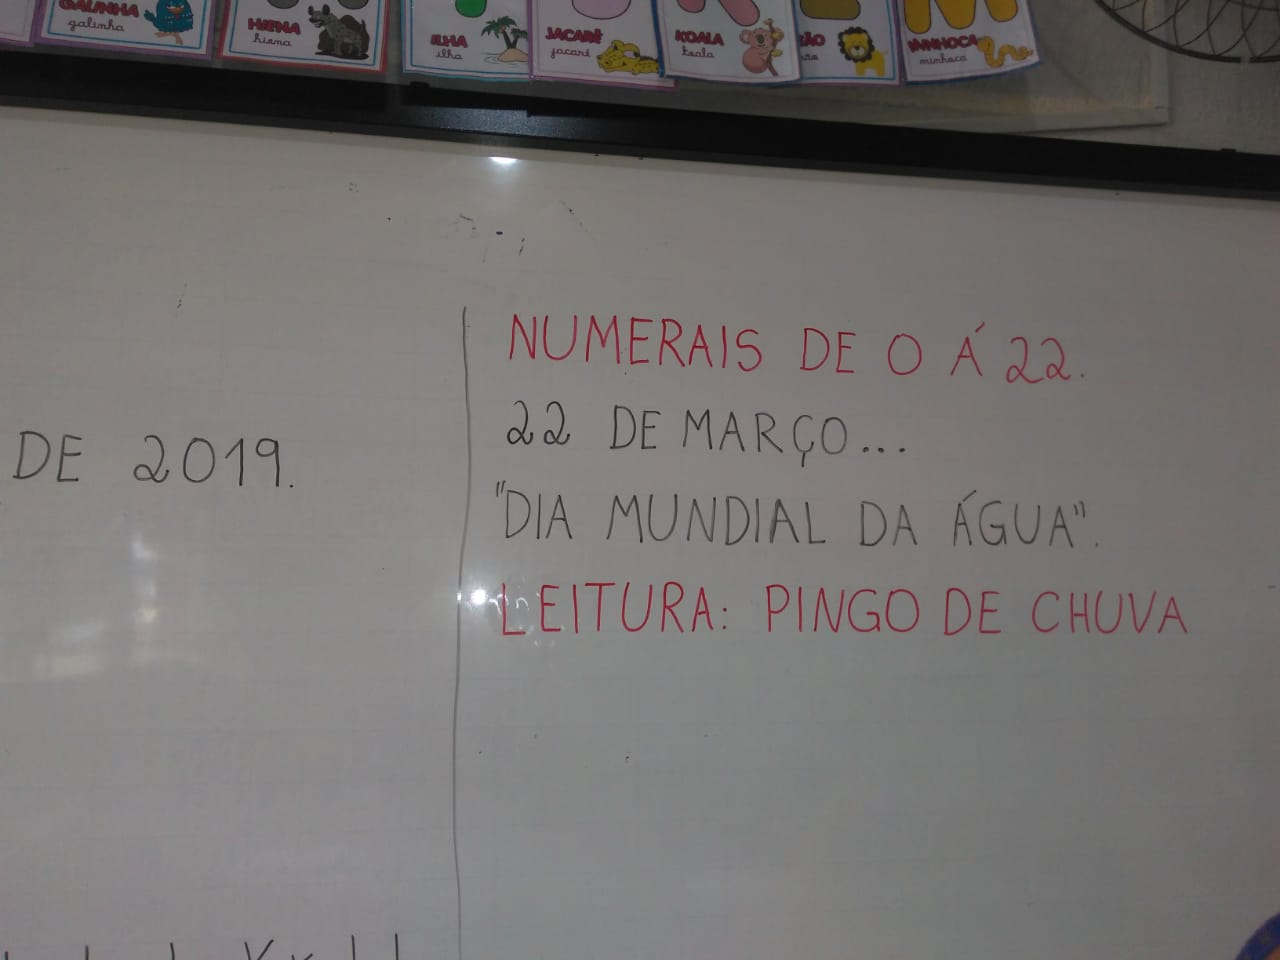 GALINHA
galinha
HIENA
hiena
ILHA
ilha
JACARÉ
jacaré
KOALA
koala
MINHOCA
minhoca
DE 2019.
NUMERAIS DE 0 Á 22.
22 DE MARÇO...
"DIA MUNDIAL DA ÁGUA".
LEITURA: PINGO DE CHUVA